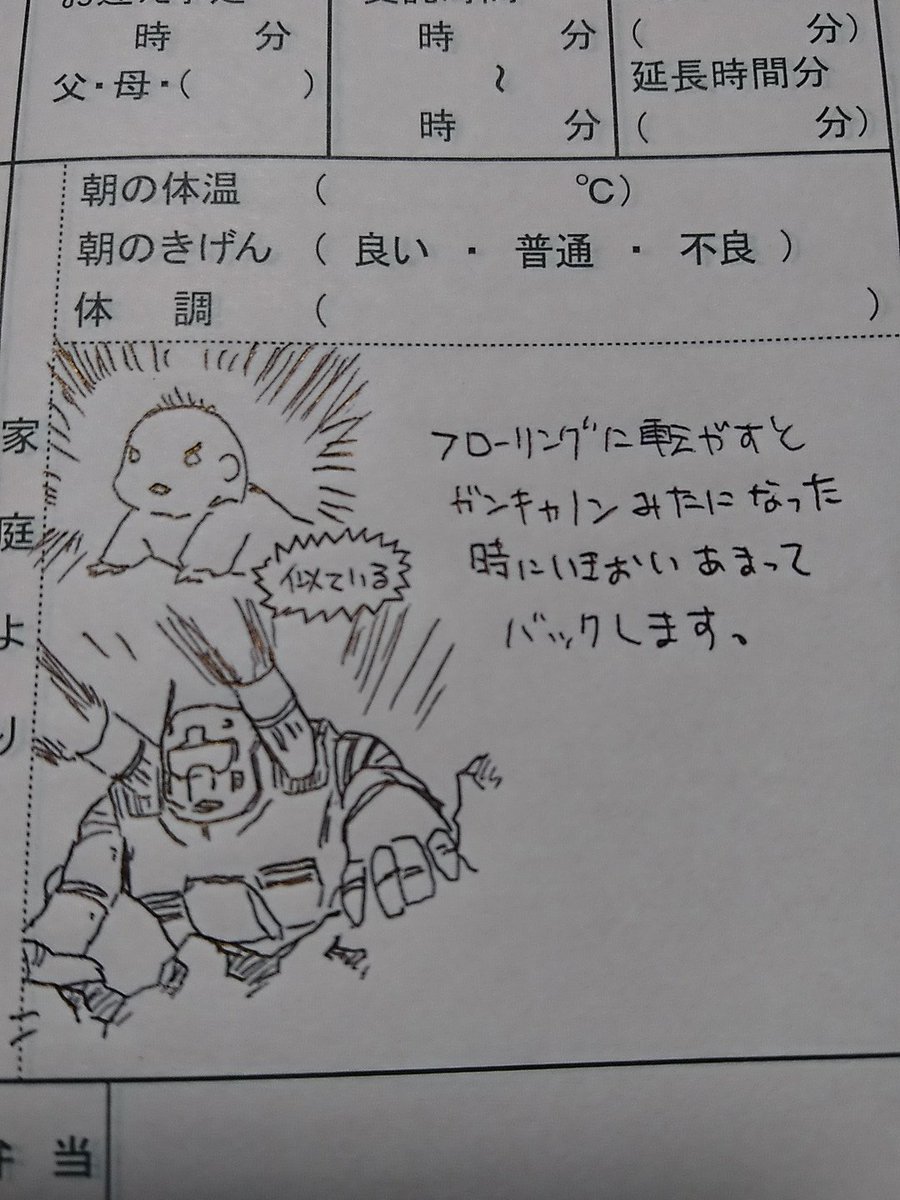 時　分
時　分
(　分)
父・母・(　)
〜
延長時間分
時　分
(　分)
朝の体温　(　℃)
朝のきげん　( 良い ・ 普通 ・ 不良 )
体　調　(　)
家庭より
フローリングに転がすと
ガンキャノンみたになった
時にいきおいあまって
バックします。
似ている
当